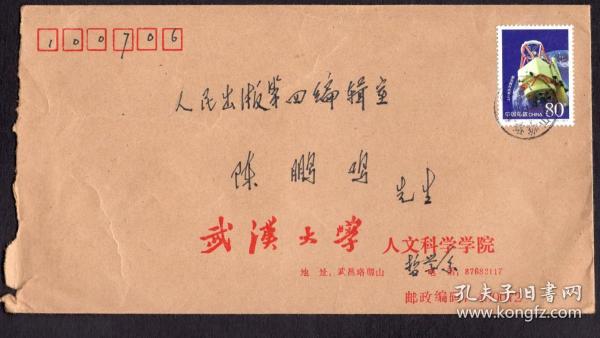 100706
人民出版第四编辑室
中国邮政 CHINA 80
陈鹏鸣
先生
武漢大學 人文科学学院
哲学系
地 址:武昌珞珈山 87682117
邮政编码
孔夫子旧书网
www.kongfz.com